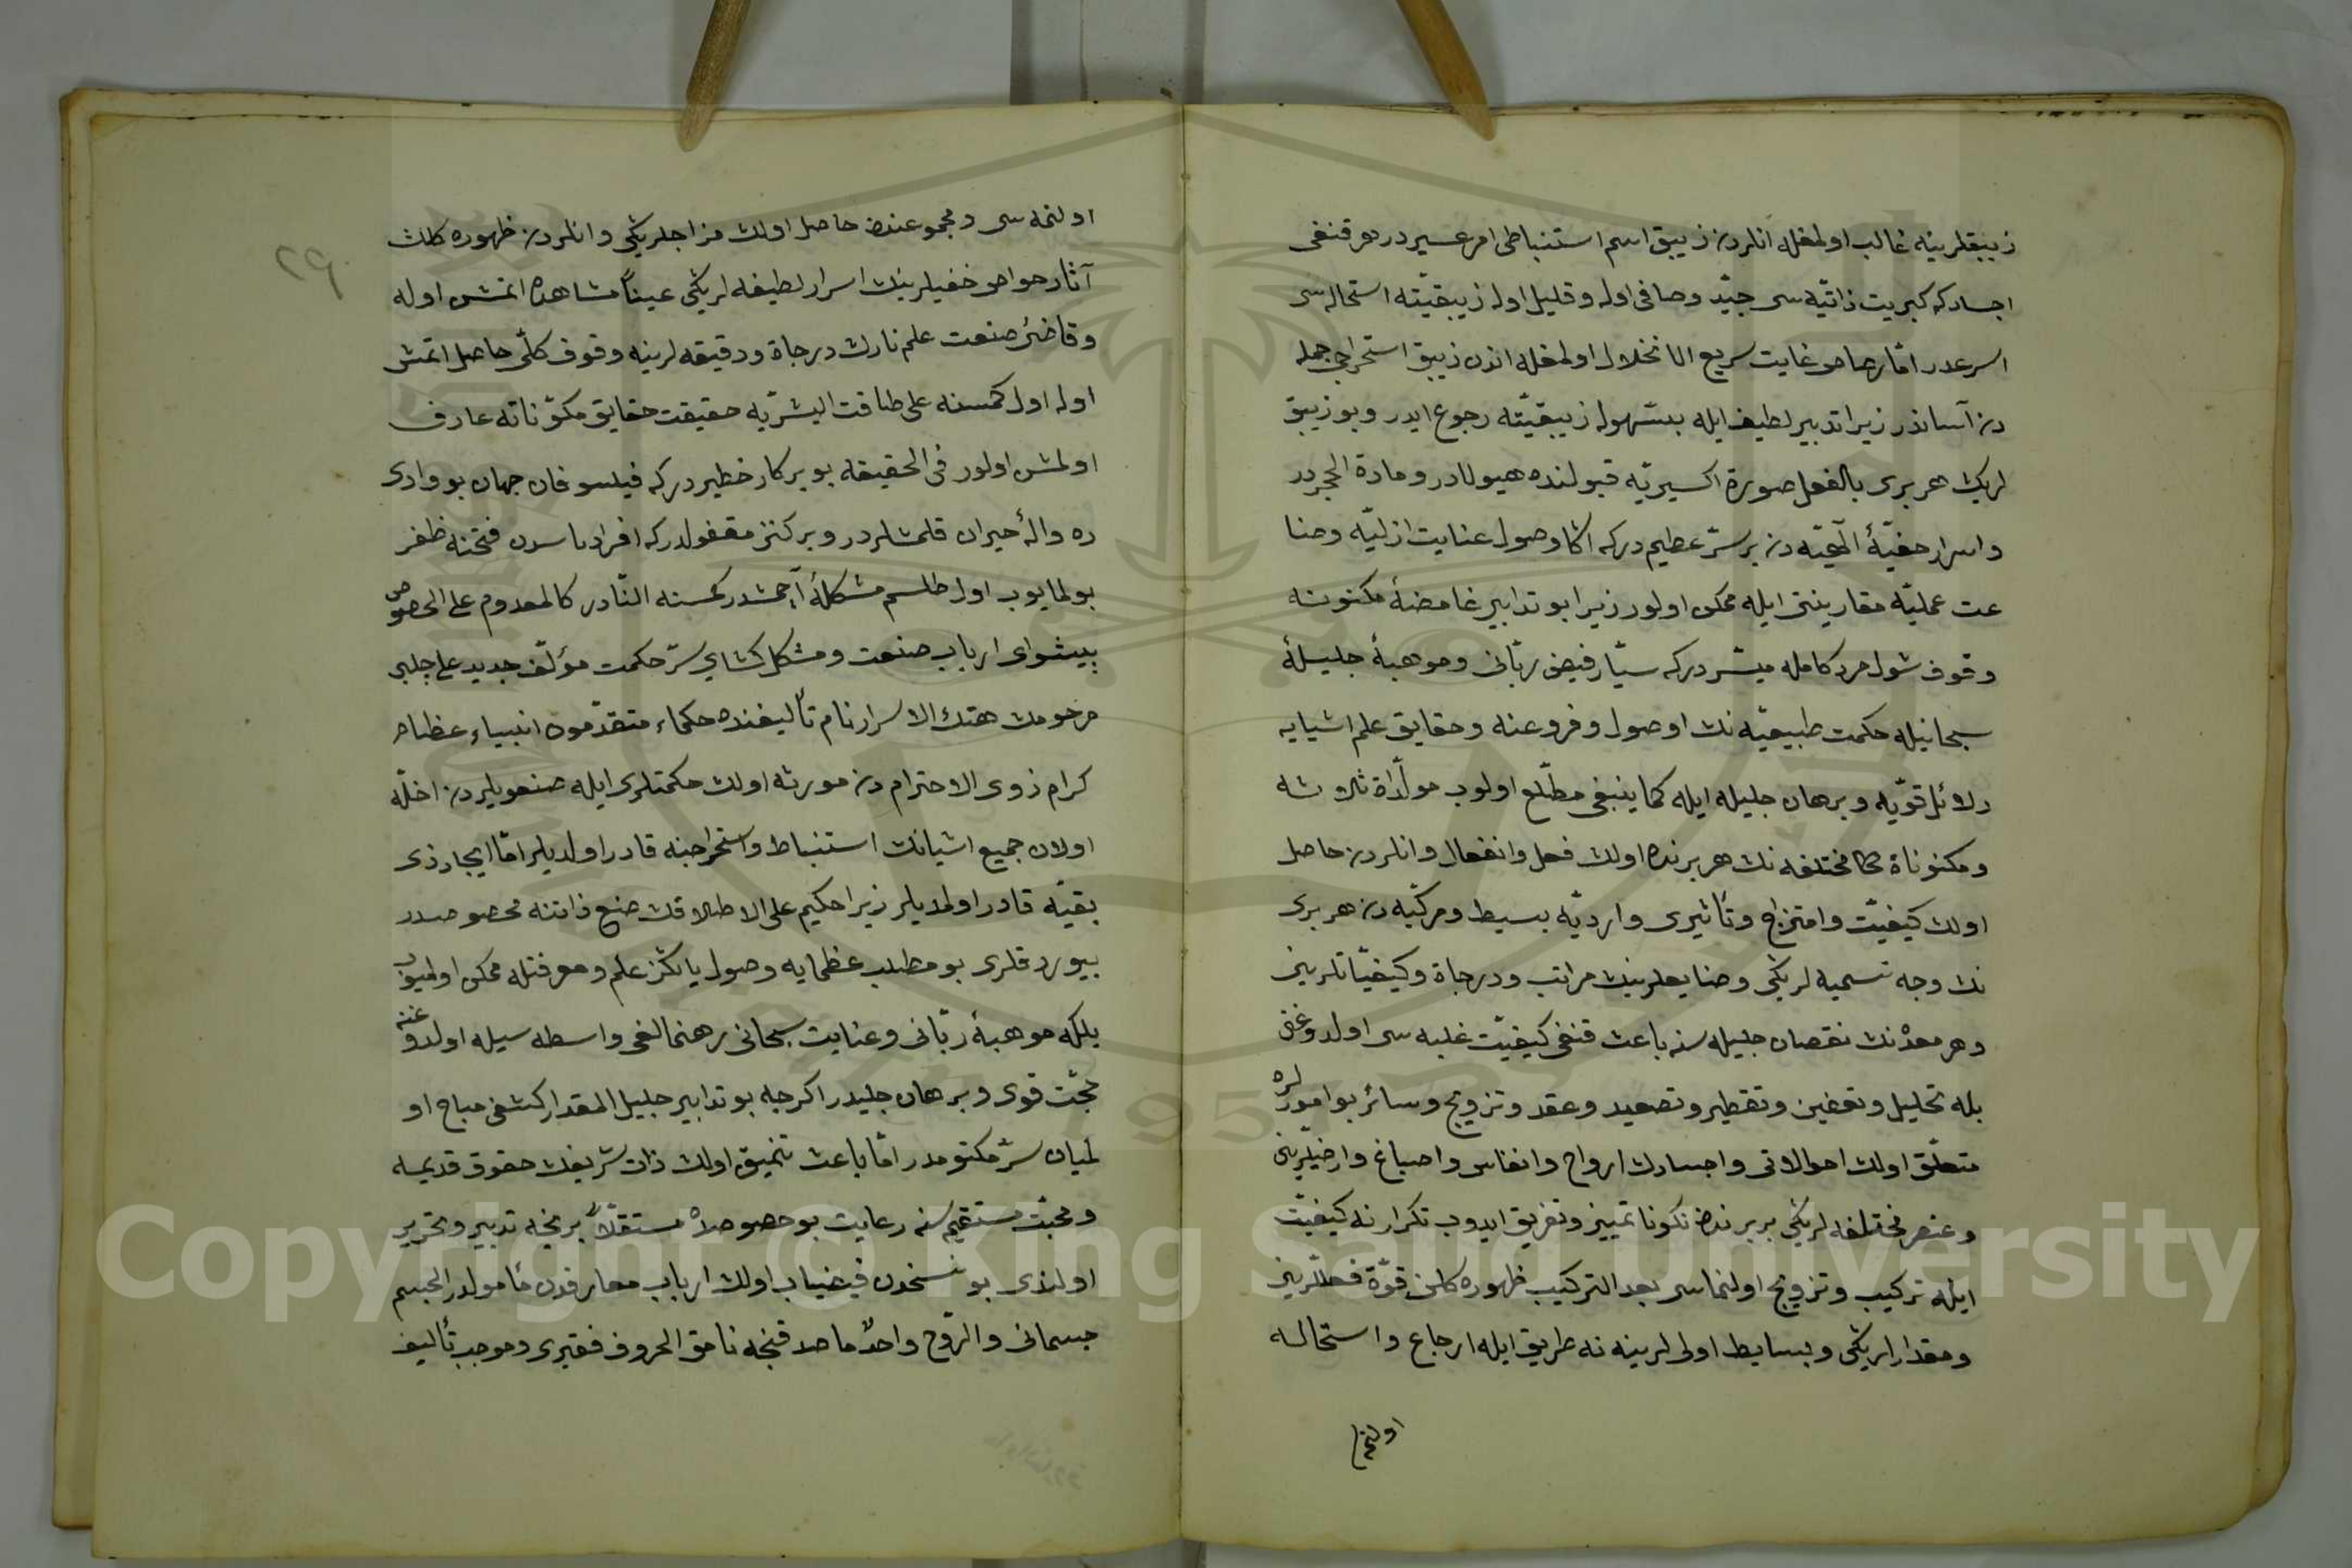 زيبقلرينه غالب اولمغله انلردن زيبق اسم استنباطى امر عسير در هر قنغى
اجسادكه كبريت ذاتيه سى جيّد وصافى اوله وقليل اوله زيبقيّته استحاله سى
اسرعدر امّا رصاص غايت سريع الانحلال اولمغله اندن زيبق استخراجى جمله
دن آسانذر زيرا تدبير لطيف ايله بسهوله زيبقيّته رجوع ايدر وبو زيبق
لريك هر برى بالفعل صورة اكسيريّه قبولنده هيولادر ومادة الحجردر
واسرار خفيّهٔ الٓهيّه دن بر سرّ عظيم دركه اكا وصول عنايت ازليّه وصنا
عت عمليّه مقارينتى ايله ممكن اولور زيرا بو تدابير غامضهٔ مكنونه
وقوف شول مرد كامله ميسّر دركه سيّار فيض ربّانى وموهبهٔ جليلهٔ
سبحانيله حكمت طبيعيّه نك اوصول وفروعنه وحقايق علم اشيايه
دلائل قويّه وبرهان جليله ايله كما ينبغى مطّلع اولوب مولّداة ثلاوثه
ومكنوناة مختلفه نك هر برنده اولك فعل وانفعال وانلردن حاصل
اولك كيفيّت وامتزاج وتأثيرى وارديّه بسيط ومركّبه دن هر برى
نك وجه تسميه لريكى وصنايعلرينك مراتب ودرجاة وكيفيّاتلرينى
وهر معدنك نقصان جليله سنه باعث قنغى كيفيّت غلبه سى اولدوغنى
بله تحليل وتعفين وتقطير وتصعيد وعقد وتزويج وسائر بو امورلره
متعلّق اولك احوالاتى واجسادك ارواح وانفاس واصباغ وارضيّلرينى
وعنصر مختلفه لريكى بربرندن نكونا تمييز وتفريق ايدوب تكرار نه كيفيّت
ايله تركيب وتزويج اولنماسى بعد التركيب ظهوره كلن قوّة فعللرينى
ومقدارلريكى وبسايط اولى لرينه نه طريق ايله ارجاع واستحاله
اولنما
٢٩
اولنمه سى ومجموعندن حاصل اولك مزاجلريكى وانلردن ظهوره كلك
آثار خواص خفيلرينك اسرار لطيفه لريكى عيناً مشاهده اتمش اوله
وقاضئ صنعت علم نارك درجاة ودقيقه لرينه وقوف كلّى حاصل اتمش
اوله اول كمسنه على طاقت البشريّه حقيقت حقايق مكوّناته عارف
اولمش اولور فى الحقيقه بو بر كار خطير دركه فيلسوفان جهان بو وادى
ده والهٔ حيران قلمشلردر وبر كنز مقفولدركه افراد ناسدن فتحنه ظفر
بولمايوب اول طلسم مشكلهٔ آچمشدر كمسنه النّادر كالمعدوم على الخصوص
پيشواى ارباب صنعت ومشكل كشاى سرّ حكمت مؤلّف جديد على چلبى
مرحومك هتك الاسرار نام تأليفنده حكماء متقدّمون انبياء عظام
كرام ذوى الاحترام دن مورثه اولك حكمتلرى ايله صنعويلردن اخلّه
اولان جميع اشيانك استنباط واستخراجنه قادر اولديلر امّا ايجاد ذى
بقيّه قادر اولمديلر زيرا حكيم على الاطلاقك صنع ذاتنه مخصوصدر
بيوردقلرى بو مطلب عظمايه وصول يالكز علم ومعرفتله ممكن اولميوب
بلكه موهبهٔ ربّانى وعنايت سبحانى رهنمالغى واسطه سيله اولدوغنه
حجّت قوى وبرهان جليدر اكرچه بو تدابير جليل المقدار كشفى مباح او
لميان سرّ مكتومدر امّا باعث تنميق اولك ذات شريفك حقوق قديمه
ومحبّت مستقيمه سنه رعايت بو خصوصده مستقلاً بر نيجه تدبير وتحرير
اولنذى بو نسخه‌دن فيضياب اولك ارباب معارفدن مأمولدر الجسم
جسمانى والرّوح واحدٌ ماصدقنجه نامق الحروف فقيرى وموجب تأليف